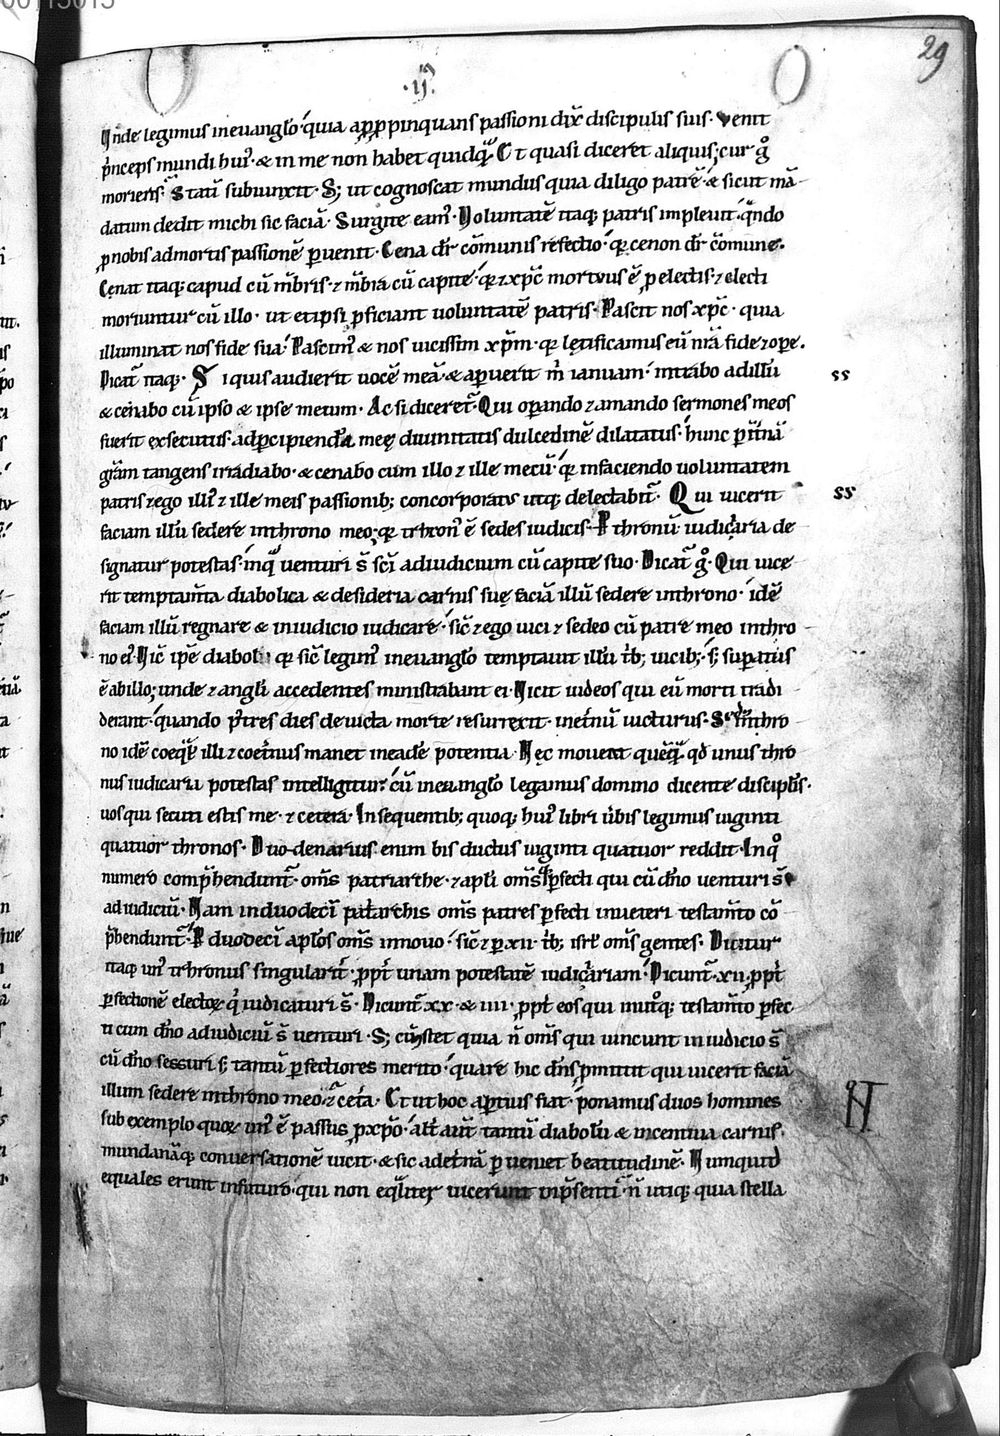 00115015
29
.ii.
Unde legimus in euanglo. quia appropinquans passioni dix̄ discipulis suis. Venit
p̄nceps mundi hui᾽. & in me non habet quidq̄. Et quasi diceret aliquis; cur g̊
moreris. Statī subiunxit. S; ut cognoscat mundus quia diligo patrē. & sicut mā-
datum dedit michi sic faciā. Surgite eam᾽. Voluntatē itaq; patris impleuit. q̄ndo
ꝓ nobis ad mortis passionē ꝑuenit. Cena dr̄ cōmunis refectio. qꝛ cenon dr̄ cōmune.
Cenat itaq; capud cū mb̄ris. ⁊ mb̄ra cū capite. qꝛ ⁊ xp̄c mortuus ē ꝓ electis. ⁊ electi
moriuntur cū illo. ut et ipsi ꝑficiant uoluntatē patris. Pascit nos xp̄c. quia
illuminat nos fide sua. Pascim᾽ & nos uicissim xp̄m. qꝛ lętificamus eū nr̄a fide ⁊ oꝑe.
Dicat̄ itaq;. Si quis audierit uocē meā. & aꝑuerit m̄ ianuam. intrabo ad illū
ss
& cenabo cū ipso & ipse mecum. Ac si diceret̄. Qui oꝑando ⁊ amando sermones meos
fuerit exsecutus. ad ꝑcipiendā meę diuinitatis dulcedinē dilatatus. hunc ꝑ t̄tinā
grām tangens irradiabo. & cenabo cum illo ⁊ ille mecū. qꝛ in faciendo uoluntatem
patris ⁊ ego illi᾽ ⁊ ille meis passionib; concorporatus utq; delectabit̄. Qui uicerit
ss
faciam illū sedere in throno meo. qꝛ thron᾽ ē sedes iudicis. P thronū iudiciaria de-
signatur potestas. in q̄ uenturi s̄ sc̄i ad iudicium cū capite suo. Dicat̄ g̊. Qui uice-
rit temptam̄ta diabolica & desideria carnis suę faciā illū sedere in throno. idē
faciam illū regnare & in iudicio iudicare. sic̄ ⁊ ego uici ⁊ sedeo cū patre meo in thro-
no ei᾽. Uic̄ ip̄e diabolū qꝛ sic̄ legim᾽ in euanglo temptauit illū t̄b; uicib;. s; suꝑatus
ē ab illo; unde ⁊ angli accedentes ministrabant ei. Uicit iudeos qui eū morti tradi-
derant. quando p᾽ tres dies deuicta morte resurrexit. inet̄nū uicturus. Sedet in thro-
no idē coeq̄l illi ⁊ coet̄nus manet in eadē potentia. Hęc mouent quēq̄. qd̄ unus thro-
nus iudiciaria potestas intelligitur. cū in euanglo legamus domino dicente discipłis.
uos qui secuti estis me. ⁊ cetera. In sequentib; quoq; hui᾽ libri u̇bis legimus uiginti
quatuor thronos. Duo denarius enim bis ductus uiginti quatuor reddit. In q̊
numero comp̄hendunt̄. om̄s patriarche. ⁊ apłi om̄sq; ꝑfecti qui cū dn̄o uenturi s̄
ad iudiciū. Nam in duodecī pat̄archis om̄s patres ꝑfecti in ueteri testam̄to cō-
p̄hendunt̄. P duodecī apłos om̄s in nouo. sic̄ ⁊ ꝑ xii t̄b; isrł om̄s gentes. Dicitur
itaq; un᾽ thronus singularit̄. ꝓpt̄ unam potestatē iudiciariam. Dicunt̄ xii. ꝓpt̄
ꝑfectionē electoꝝ qui iudicaturi s̄. Dicunt̄ xx. & iiii. ꝓpt̄ eos qui in utroq; testam̄to ꝑfec-
ti cum dn̄o ad iudiciū s̄ uenturi. S; cū constet quia n̄ om̄s qui uincunt in iudicio s̄
cū dn̄o sessuri s; tantū ꝑfectiores merito. quare hic dn̄s ꝓmittit qui uicerit faciā
illum sedere in throno meo. ⁊ cet̄a. Et ut hoc aꝑtius fiat. ponamus duos homines
sub exemplo quoꝝ un᾽ ē passus ꝓ xp̄o. alt̄ aut̄ tantū diabolū & incentiua carnis.
mundanāq; conuersationē uicit. & sic ad et̄nā ꝑueniet beatitudinē. Numquid
equales erunt in futuro. qui non eq̄lit̄ uicerunt in p̄senti. n̄ utiq; quia stella